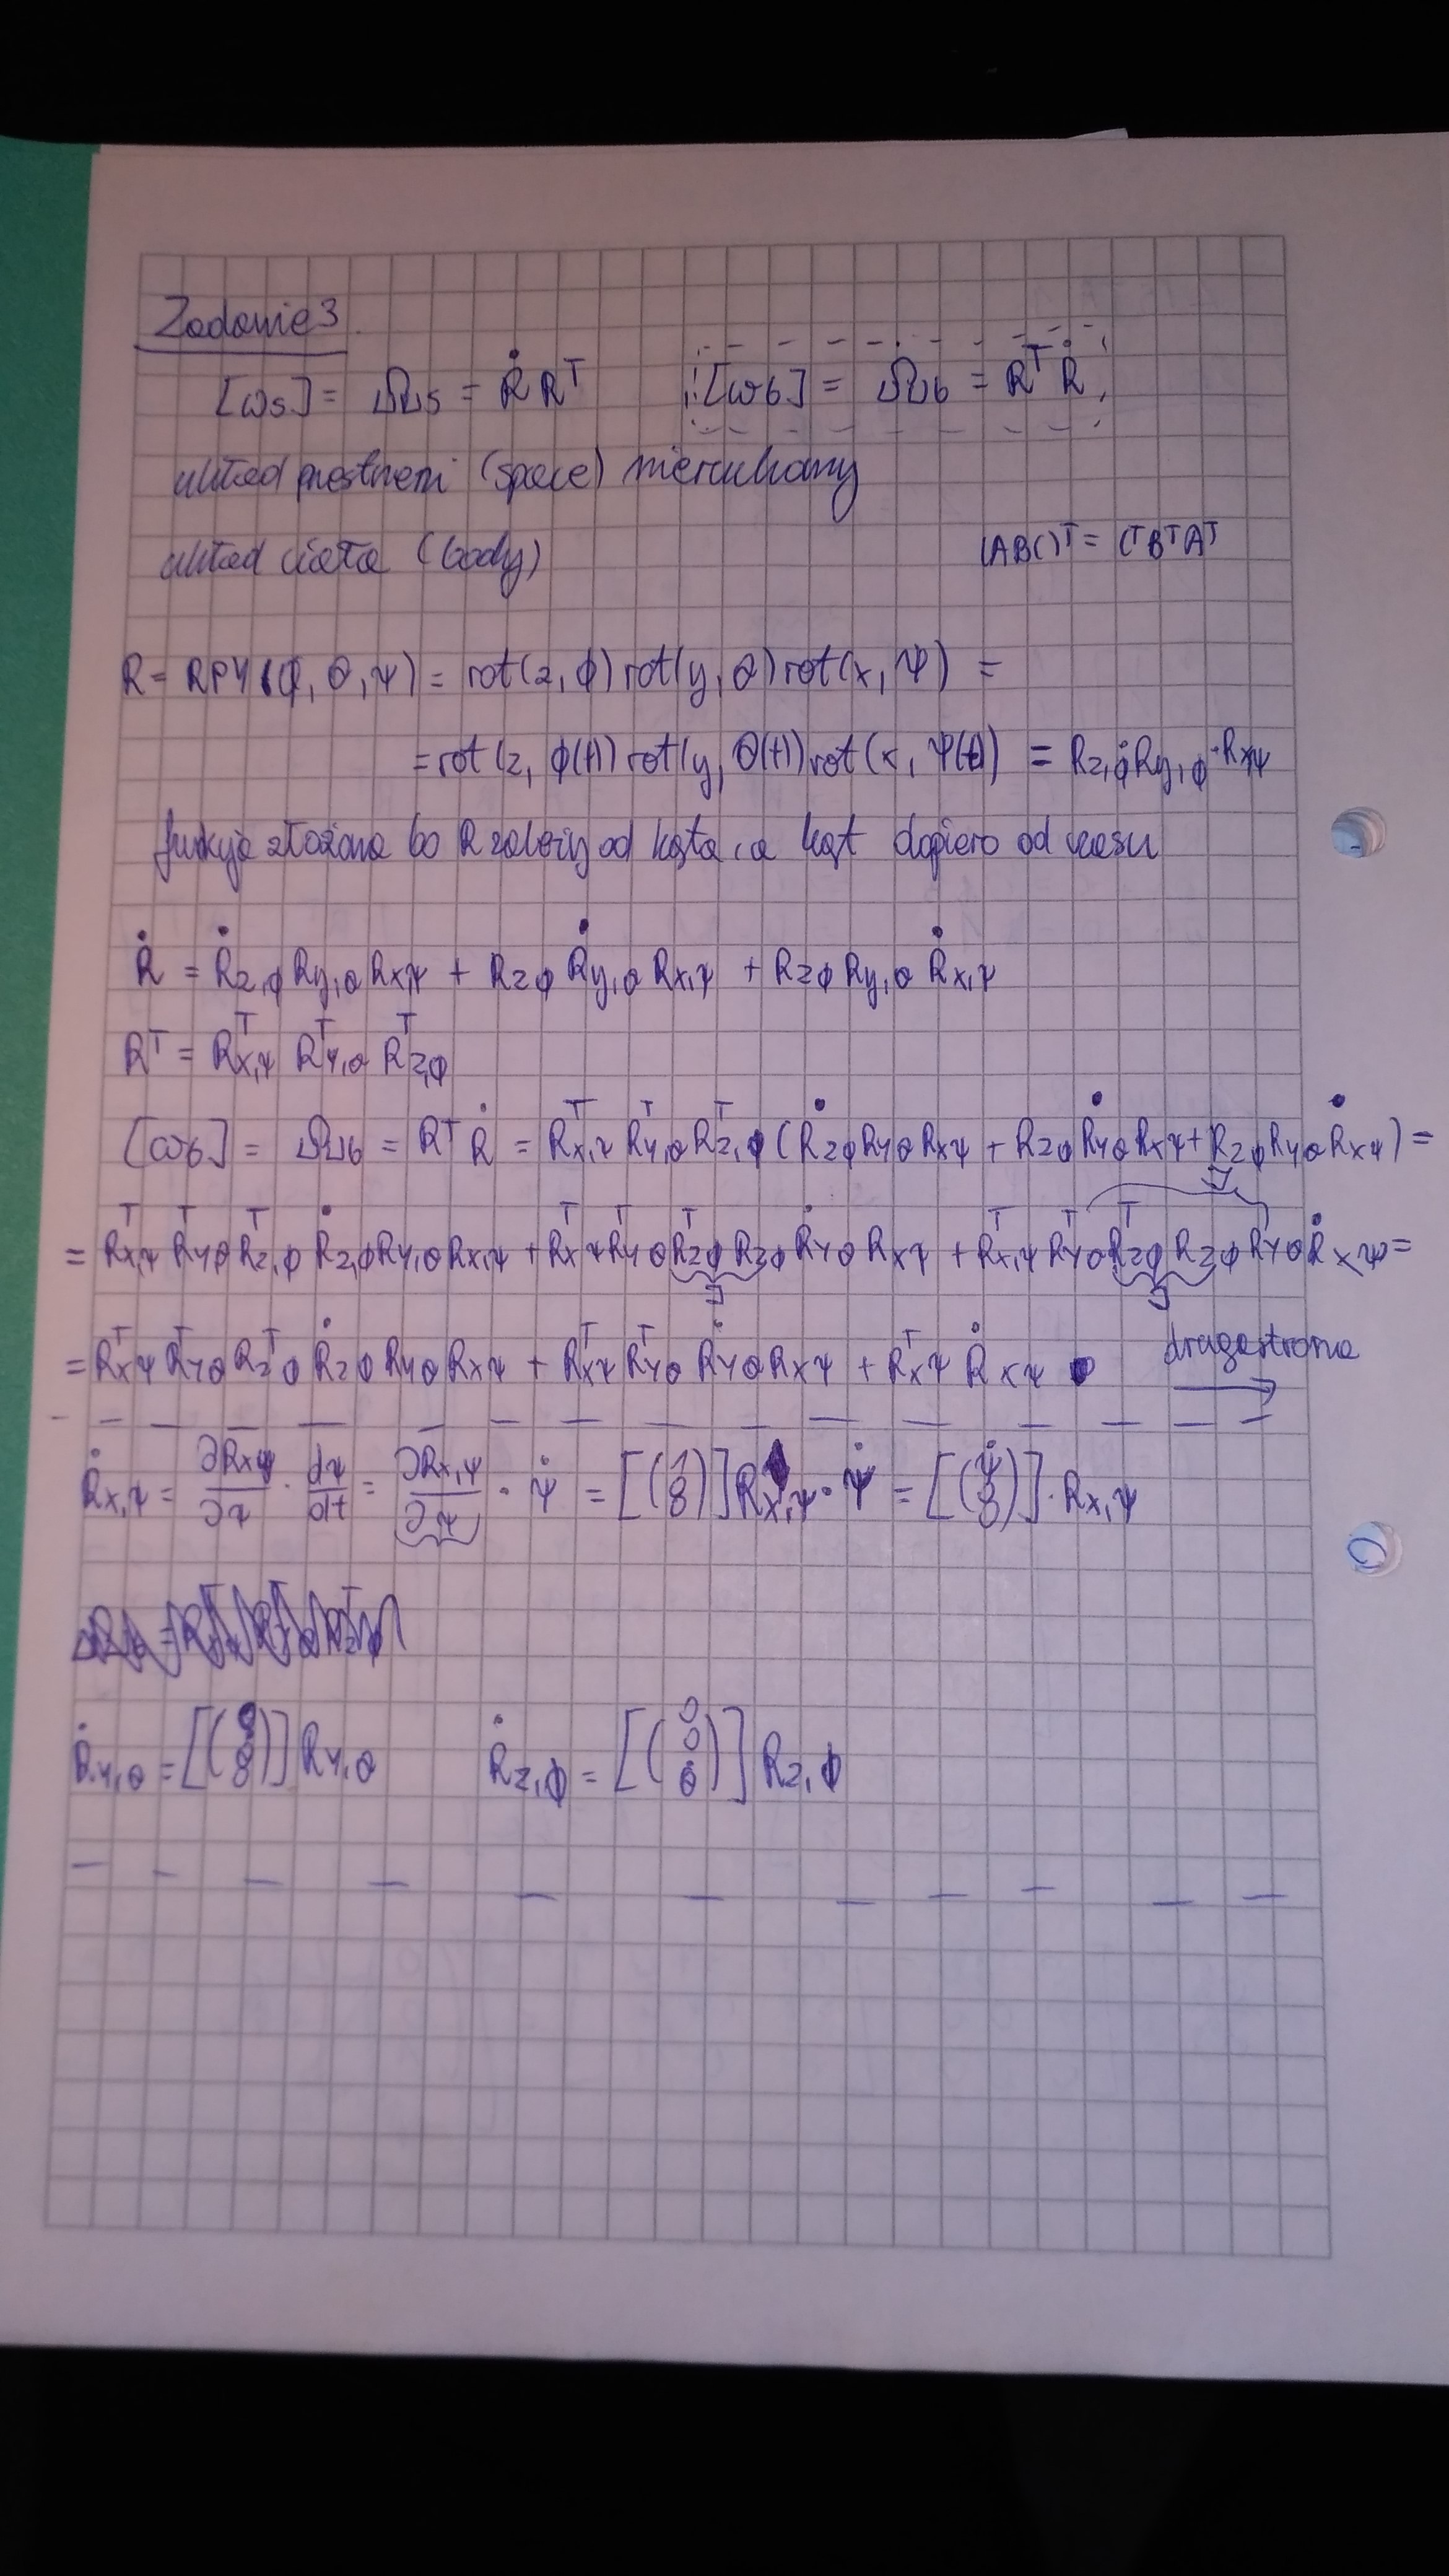 Zadanie 3
[ωs] = Ωs = Ṙ Rᵀ [ωb] = Ωb = Rᵀ Ṙ
układ przestrzeni (space) nieruchomy
układ ciała (body) (ABC)ᵀ = CᵀBᵀAᵀ
R = RPY(ϕ, θ, ψ) = rot(z, ϕ) rot(y, θ) rot(x, ψ) =
= rot(z, ϕ(t)) rot(y, θ(t)) rot(x, ψ(t)) = Rz,ϕ Ry,ϕ · Rxψ
funkcja złożona bo R zależy od kąta, a kąt dopiero od czasu
Ṙ = Ṙz,ϕ Ry,θ Rx,ψ + Rzϕ Ṙy,θ Rx,ψ + Rzϕ Ry,θ Ṙx,ψ
Rᵀ = Rᵀx,ψ Rᵀy,θ Rᵀz,ϕ
[ωb] = Ωb = Rᵀ Ṙ = Rᵀx,ψ Rᵀy,θ Rᵀz,ϕ (Ṙzϕ Ryθ Rxψ + Rzϕ Ṙyθ Rxψ + Rzϕ Ryθ Ṙxψ) =
= Rᵀxψ Rᵀyθ Rᵀz,ϕ Ṙz,ϕ Ry,θ Rx,ψ + Rᵀxψ Rᵀyθ Rᵀzϕ Rzϕ Ṙyθ Rxψ + Rᵀx,ψ Rᵀyθ Rᵀzϕ Rzϕ Ryθ Ṙxψ =
J J J
= Rᵀxψ Rᵀyθ Rᵀzϕ Ṙzϕ Ryθ Rxψ + Rᵀxψ Rᵀyθ Ṙyθ Rxψ + Rᵀxψ Ṙxψ druga strona →
Ṙx,ψ = ∂Rxψ/∂ψ · dψ/dt = ∂Rx,ψ/∂ψ · ψ̇ = [(1 0 0)] Rx,ψ · ψ̇ = [(ψ̇ 0 0)] · Rx,ψ
Ṙz,ϕ = Rz,ϕ